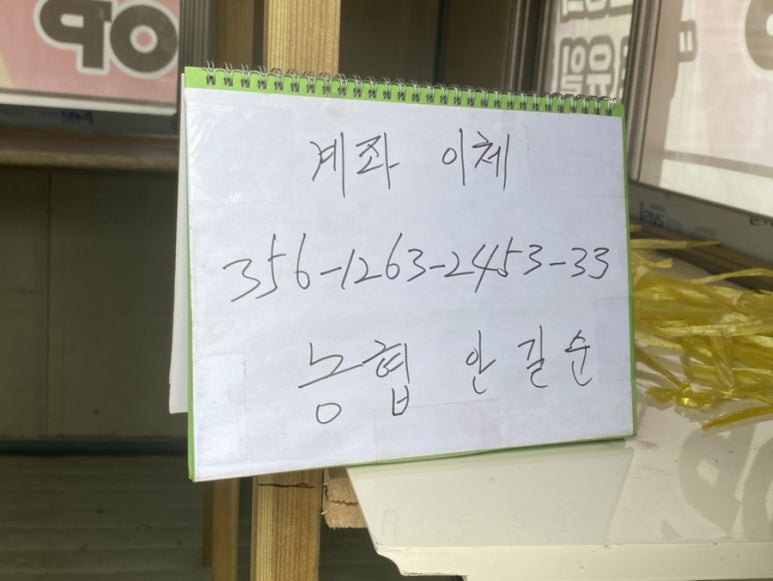 계좌 이체
356-1263-2453-33
농협 안길순